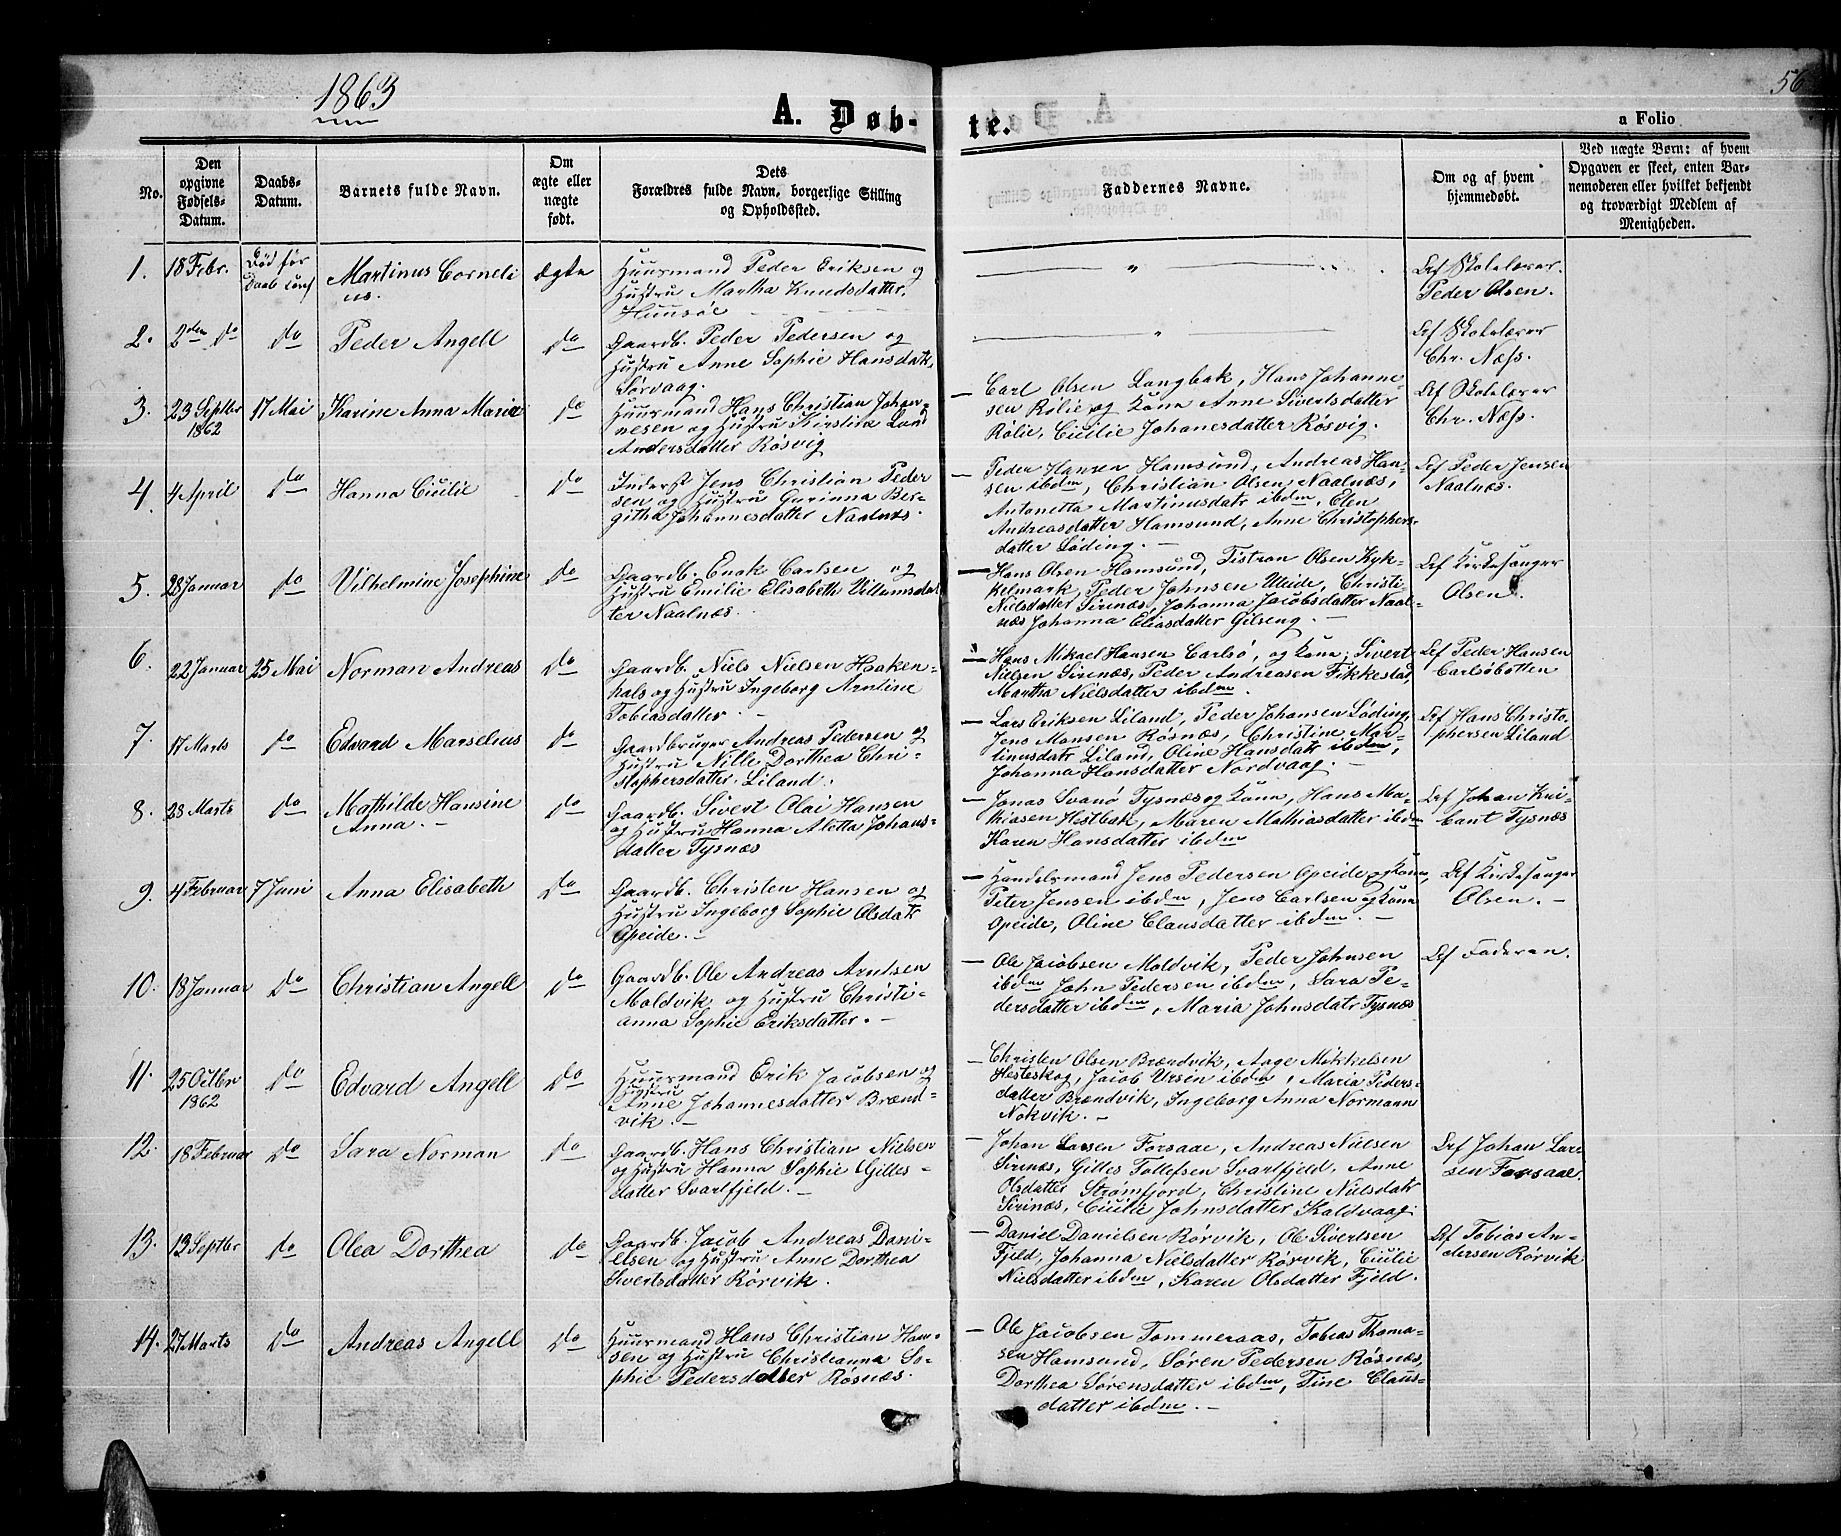 1863
56
A. Døb-
te.
a Folio
No.
Den opgivne Fødsels-Datum.
Daabs-Datum.
Barnets fulde Navn.
Om ægte eller uægte født.
Dets Forældres fulde Navn, borgerlige Stilling og Opholdssted.
Faddernes Navne.
Om og af hvem hjemmedøbt.
Ved uægte Børn: af hvem Opgaven er skeet, enten Barnemoderen eller hvilket bekjendt og troværdigt Medlem af Menigheden.
1. 18 Febr. Død før Daab conf Martinus Corneli
us.
Ægte
Huusmand Peder Eriksen og
Hustru Martha Knudsdatter,
"
Def Skolelærer.
Peder Olsen.
2. 2den do do Peder Angell do
Gaardb. Peder Pedersen og
Hustru Anne Sophie Hansdatr
Sørvaag.
"
Def Skolelærer
Chr. Næss.
3. 23 Septbr 1862 17 Mai Karine Anna Maria do
Huusmand Hans Christian Johan-
nesen og Hustru Kirstine
Andersdatter Røsvig
— Carl Olsen Langbak, Hans Johanne-
sen Rølie og Kona Anne Sivertsdatter
Rølie, Cicilie Johanesdatter Røsvig.
Def Skolelærer
Chr. Næss.
4. 4 April do Hanna Cicilie do
Inderst Jens Christian Peder
sen og Hustru Gurinna Ber-
githa Johannesdatter Naalnæs.
— Peder Hansen Hamsund, Andreas Han-
sen ibdm, Christian Olsen, Naalnæs,
Antonetta Martinusdatr ibdm, Elen
Andreasdatter Hamsund, Anne Christophers-
datter Løding. —
Def Peder Jensen
Naalnæs.
5. 28 Januar do Vilhelmine Josephine do
Gaardb. Enok Carlsen og
Hustru Emilie Elisabeth Villumsdat
ter Naalnæs.
— Hans Olsen Hamsund, Tistran Olsen Kyk-
kelmark, Peder Johnsen Uleide, Christi
Nielsdatter Sirinæs, Johanna Jacobsdatter Naal-
næs Johanna Eliasdatter Gilseng. —
Def Kirkesanger
Olsen.
6. 22 Januar 25 Mai Norman Andreas do
Gaardb. Niels Nielsen Haaken-
hals og Hustru Ingeborg Arntine
Tobiasdatter. —
— Hans Mikael Hansen Carlsø, og Kona, Sivert
Nielsen Sirinæs, Peder Andreasen Fikkestad,
Martha Nielsdatter ibdm.
Def Peder Hansen
Carlsøbotten
7. 17 Marts do Edvard Marselius do
Gaardbruger Andreas Pedersen og
Hustru Nille Dorthea Chri-
stophersdatter Liland.
— Lars Eriksen Liland, Peder Johansen Løding,
Jens Monsen Røsnæs, Christine Mar-
tinusdatr Liland, Oline Hansdatr ibdm,
Johanna Hansdatter Nordvaag. —
Def Hans Christo-
phersen Liland
8. 28 Marts do Mathilde Hansine
Anna. —
do
Gaardb. Sivert Olai Hansen
og Hustru Hanna Aletta Johans-
datter Tysnæs
— Jonas Svanø Tysnæs og Kona, Hans Ma-
thiasen Hestbak, Maren Mathiasdatter ibdm
Karen Hansdatter ibdm
Def Johan Kni-
Tysnæs
9. 4 Februar 7 Juni Anna Elisabeth do
Gaardb. Christen Hansen og
Hustru Ingeborg Sophie Olsdatr
Opeide. —
— Handelsmand Jens Pedersen Opeide og Kone,
Peter Jensen ibdm, Jens Carlsen og Kona
Opeide, Oline Clausdatter ibdm. —
Def Kirkesanger
Olsen. —
10. 18 Januar do Christian Angell do
Gaardb. Ole Andreas Arntsen
Moldvik og Hustru Christi-
anna Sophie Eriksdatter. —
— Ole Jacobsen Moldvik, Peder Johnsen
ibdm John Pedersen ibdm, Sara Pe-
dersdatter ibdm, Maria Johnsdatr Tysnæs
Def Faderen.
11. 25 Octbr 1862 do Edvard Angell do
Huusmand Erik Jacobsen og
Hustru
Anne Johannesdatter Brænd-
vik. —
— Christen Olsen Brændvik, Aage Mikkelsen
Hesteskog, Jacob Ursen ibdm, Maria Peders-
datter Brændvik, Ingeborg Anna Normann
Nokvik. —
12. 18 Februar do Sara Norman do
Gaardb. Hans Christian Nielsen
og Hustru Hanna Sophie Gilles-
datter Svartfjeld. —
— Johan Larsen Forsaae, Andreas Nielsen
Sirinæs, Gilles Tollefsen Svartfjeld, Anne
Olsdatter Strømfjord, Christine Nielsdatr
Sirinæs, Cicilie Johnsdatter Kaldvaag.
Def Johan Lar-
sen Forsaae.
13. 13 Septbr do Olea Dorthea do
Gaardb. Jacob Andreas Dani-
elsen og Hustru Anne Dorthea
Sivertsdatter Rørvik.
— Daniel Danielsen Rørvik, Ole Sivertsen
Fjeld, Johanna Nielsdatter Rørvik, Cicilie
Nielsdatter ibdm, Karen Olsdatter Fjeld.
Def Tobias An-
dersen Rørvik
14. 27 Marts do Andreas Angell do
Huusmand Hans Christian Han-
sen og Hustru Christianna So-
phie Pedersdatter Røsnæs.
— Ole Jacobsen Tommeraas, Tobias Thoma-
sen Hamsund, Søren Pedersen Røsnæs,
Dorthea Sørensdatter ibdm, Tine Claus-
datter ibdm. —